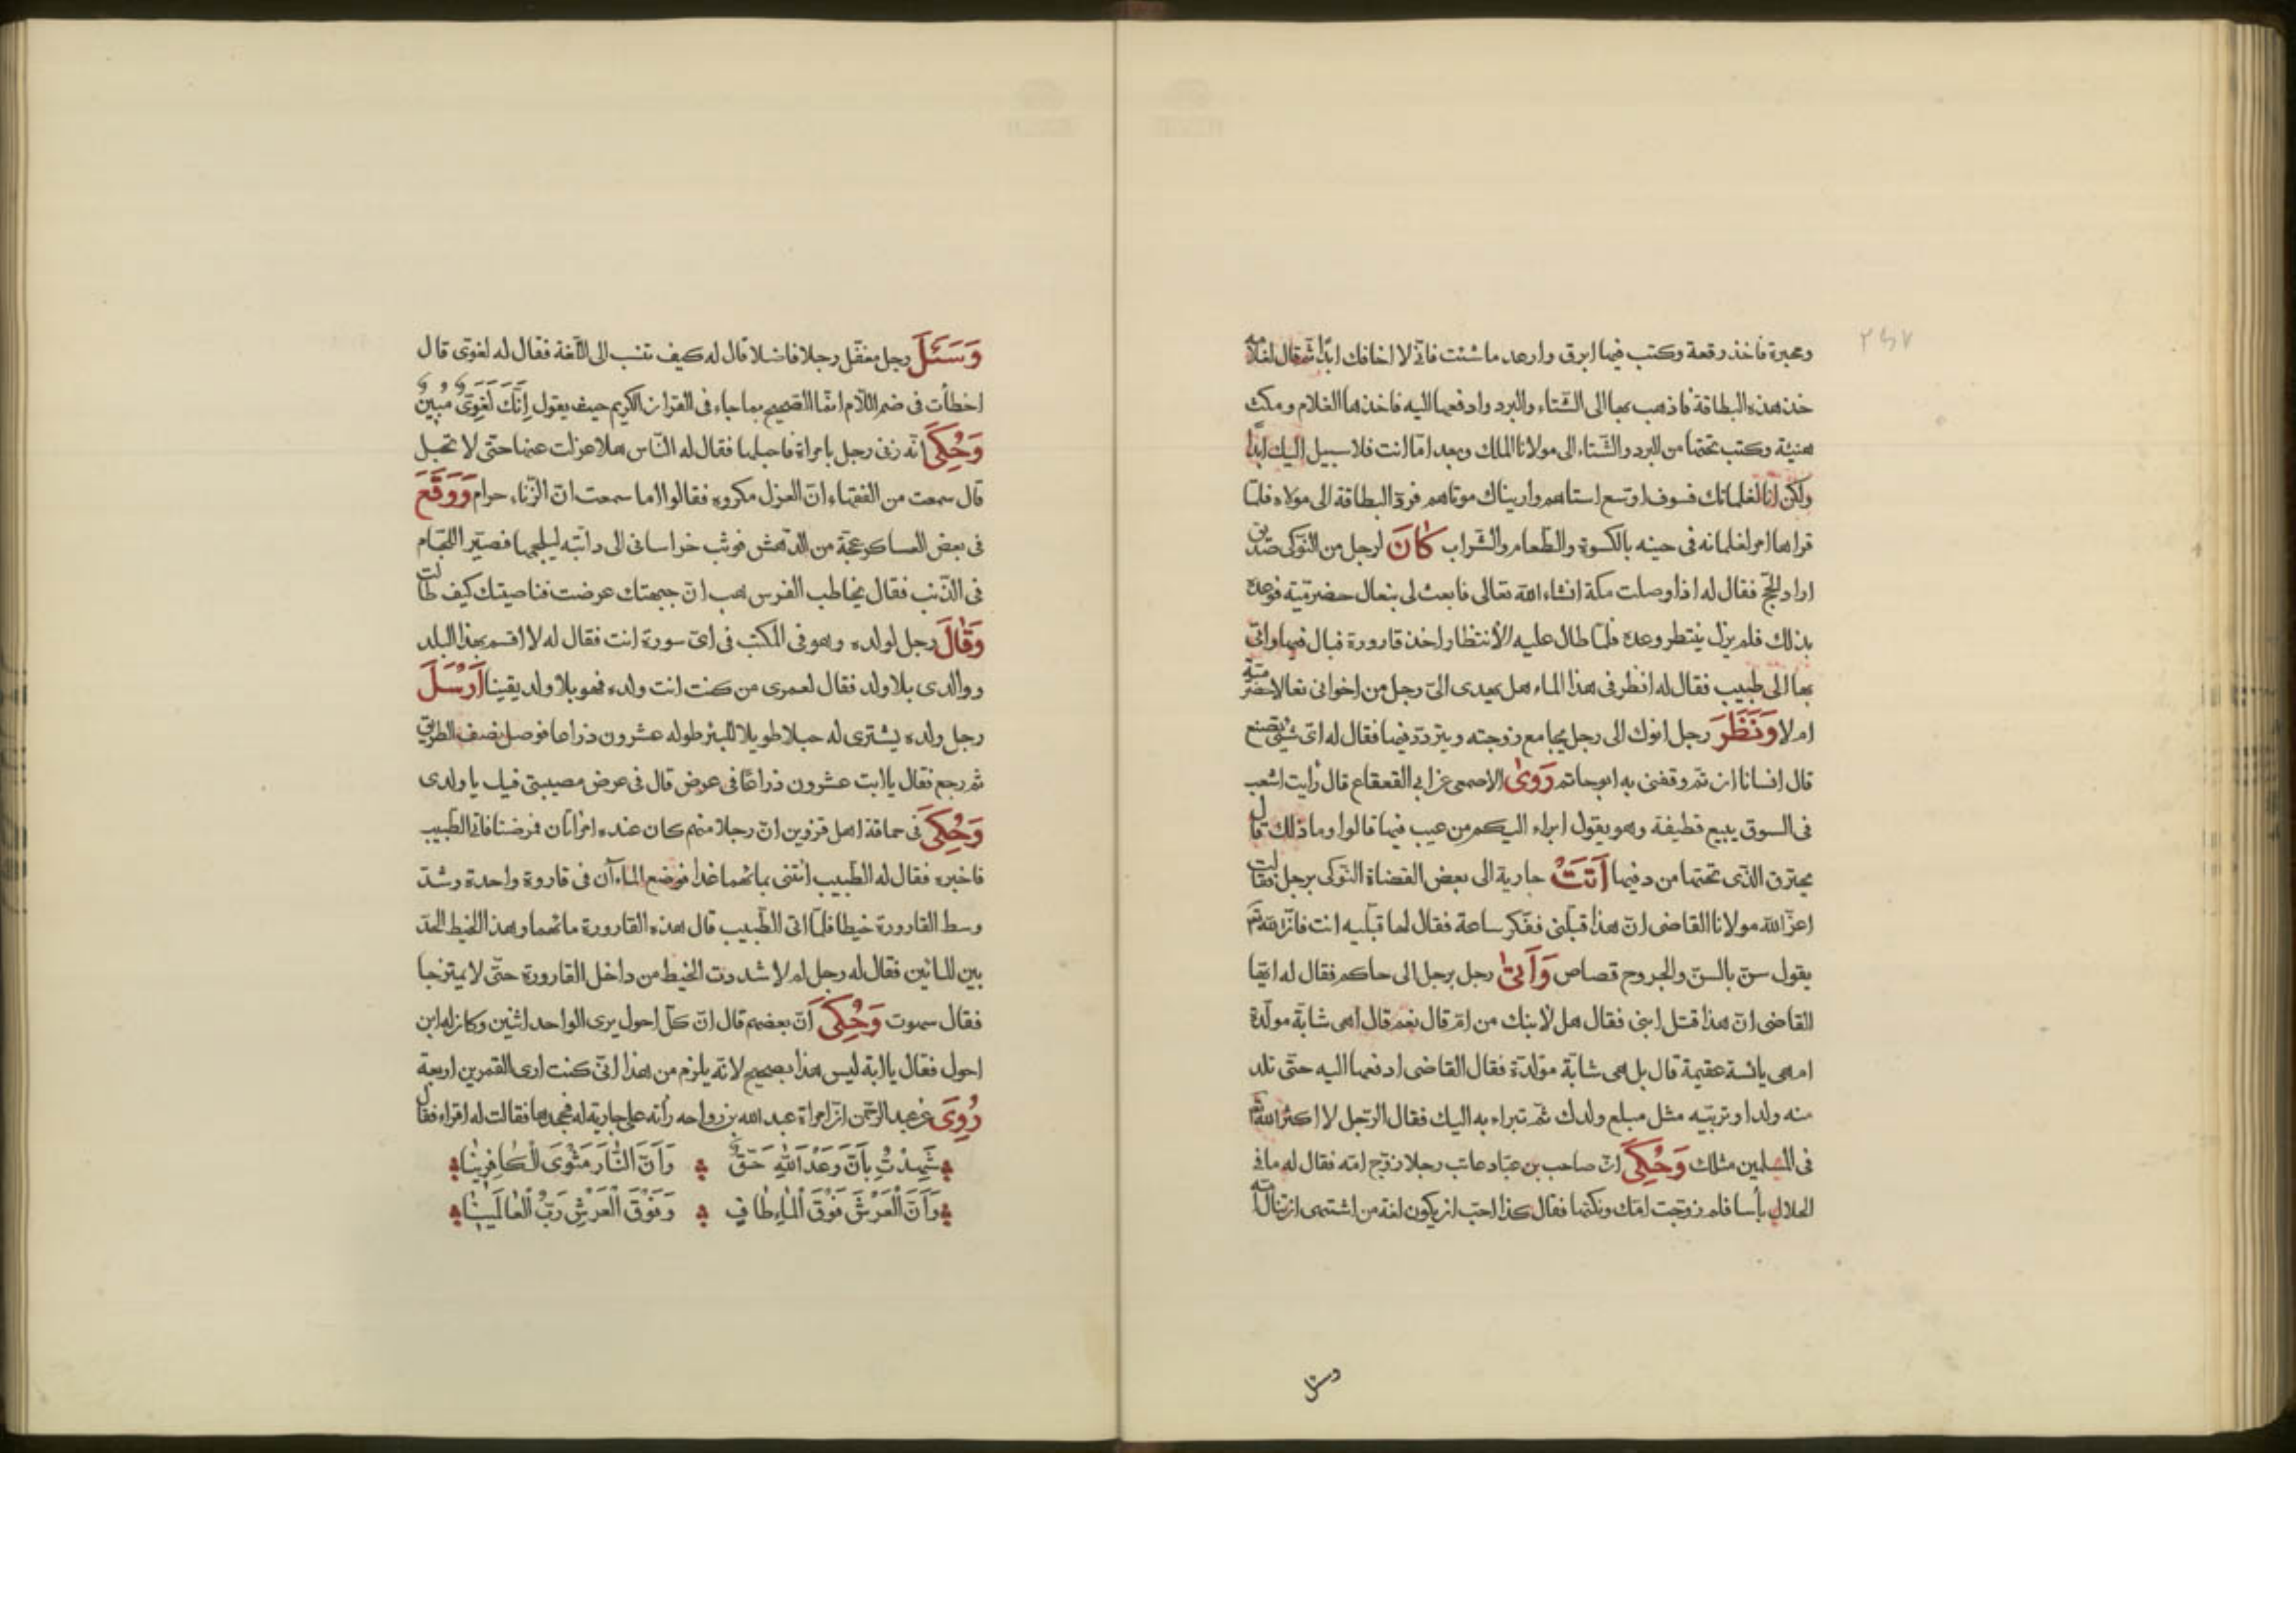 ٢٤٧
ومحبرة فاخذ رقعة وكتب فيها ابرق وارعد ما شئت فانى لا اخافك ابدا ثم قال لغلامه
خذ هذه البطاقة فاذهب بها الى الشتاء والبرد وادفعها اليه فاخذها الغلام ومكث
هنيئة وكتب تحتها من البرد والشتاء الى مولانا الملك وبعد امّا انت فلا سبيل اليك ابدًا
ولكن انا لغلمانك فسوف اوتسع استاههم واريناك موتاهم فردّ البطاقة الى مولاه فلمّا
قراها امر لغلمانه فى حينه بالكسوة والطّعام والشّراب كَانَ لرجل من النّوكى صديق
اراد الحجّ فقال له اذا وصلت مكة انشاء الله تعالى فابعث لى بنعال حضرميّة فوعده
بذلك فلم يزل ينتظر وعده فلمّا طال عليه الأنتظار اخذ قارورة فبال فيها واتى
بها الى طبيب فقال له انظر فى هذا الماء هل يهدى الىّ رجل من اخوانى نعالا حضرميّة
ام لا وَنَظَرَ رجل انوك الى رجل يجامع زوجته ويتردّد فيها فقال له اىّ شىء تصنع
قال انسانا ان تم وقفنى به ابو حاتم رَوىٰ الاصمعى عن ابى القعقاع قال رأيت اشعب
فى السوق يبيع قطيفة وهو يقول ابراء اليكم من عيب فيها قالوا وما ذلك قال
يحترق الّذى تحتها من دفيها اَتَتْ جارية الى بعض القضاة النّوكى برجل فقالت
اعزّ الله مولانا القاضى انّ هذا قبلنى ففكر ساعة فقال لها قبليه انت فانّ الله تعم
يقول سنّ بالسنّ والجروح قصاص وَاَتىٰ رجل برجل الى حاكم فقال له ايّها
القاضى انّ هذا قتل ابنى فقال هل لأبنك من امّ قال نعم قال اهى شابّة مولّدة
ام هى يائسة عقيمة قال بل هى شابّة مولّدة فقال القاضى ادفعها اليه حتّى تلد
منه ولدا وتربّيه مثل مبلع ولدك ثمّ تبراء به اليك فقال الرّجل لا اكثر الله
فى المسلمين مثلك وَحُكِىَ انّ صاحب بن عبّاد عاتب رجلا زوّج امّه فقال له ما فى
الحلال بأسا فلم زوّجت امّك ونكتها فقال كذا احبّ ان يكون لغة من اشتهى ان تنال امّه
وسئل
وَسَئَلَ رجل مغفّل رجلا فاضلا قال له كيف تنسب الى اللّغة فقال له لغوىّ قال
اخطأت فى ضمّ اللّام انّما الصّحيح بما جاء فى القران الكريم حيث يقول اِنَّكَ لَغَوِىٌّ مُبِينٌ
وَحُكِىَ انّه زنى رجل بامراة فاحبلها فقال له النّاس هلا عزلت عنها حتّى لا تحبل
قال سمعت من الفقهاء انّ العزل مكروه فقالوا اما سمعت انّ الزّناء حرام وَوَقَعَ
فى بعض العساكر عجّة من الدّهش فوثب خراسانى الى دابّته ليلجمها فصيّر اللّجام
فى الذّنب فقال يخاطب الفرس هب انّ جبهتك عرضت فناصيتك كيف طالت
وَقٰالَ رجل لولده وهو فى المكتب فى اىّ سورة انت فقال له لا اقسم بهذا البلد
ووالدى بلا ولد فقال لعمرى من كنت انت ولده فهو بلا ولد يقينا اَرْسَلَ
رجل ولده يشترى له حبلا طويلا للبئر طوله عشرون ذراعا فوصل نصف الطريق
ثم رجع فقال يا ابت عشرون ذراعًا فى عرض قال فى عرض مصيبتى فيك يا ولدى
وَحُكِىَ فى حماقة اهل قزوين انّ رجلا منهم كان عنده امرأتان فمرضتا فاتى الطّبيب
فاخبره فقال له الطّبيب ائتنى بمائهما غدا فوضع الماء آن فى قاروة واحدة وشدّ
وسط القارورة خيطا فلمّا اتى الطّبيب قال هذه القارورة مائهما وهذا الخيط الحدّ
بين المائين فقال له رجل لم لا شددت الخيط من داخل القارورة حتّى لا يمتزجا
فقال سهوت وَحُكِىَ انّ بعضهم قال انّ كلّ احول يرى الواحد اثنين وكان له ابن
احول فقال يا ابة ليس هذا بصحيح لانّه يلزم من هذا انّى كنت ارى القمرين اربعة
رُوِىَ عن عبد الرّحمن انّ امراة عبد الله بن رواحه رأته على جارية له فجحدها فقالت له اقراء فقال
شَهِدْتُ بِاَنَّ وَعْدَ اللّٰهِ حَقٌّ وَاَنَّ النّٰارَ مَثْوَى الْكٰافِرِينٰا
وَاَنَّ الْعَرْشَ فَوْقَ الْمٰاءِ طٰافٍ وَفَوْقَ الْعَرْشِ رَبُّ الْعٰالَمِينٰا